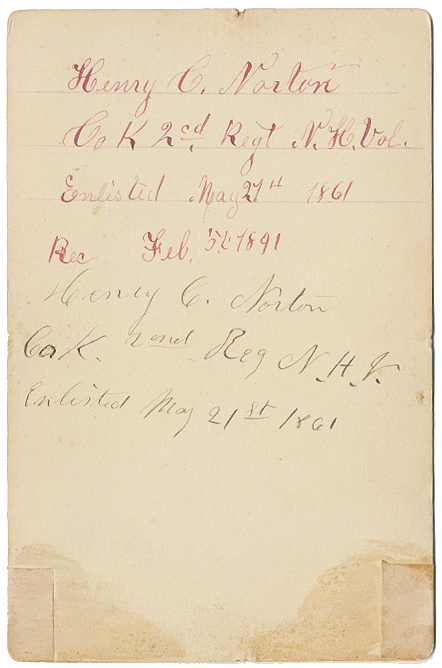 Henry C. Norton
Co K 2nd Regt N.H. Vol.
Enlisted May 21st 1861
Rec Feb. 5th 1891
Henry C. Norton
Co K. 2nd Reg N.H.V.
Enlisted May 21st 1861